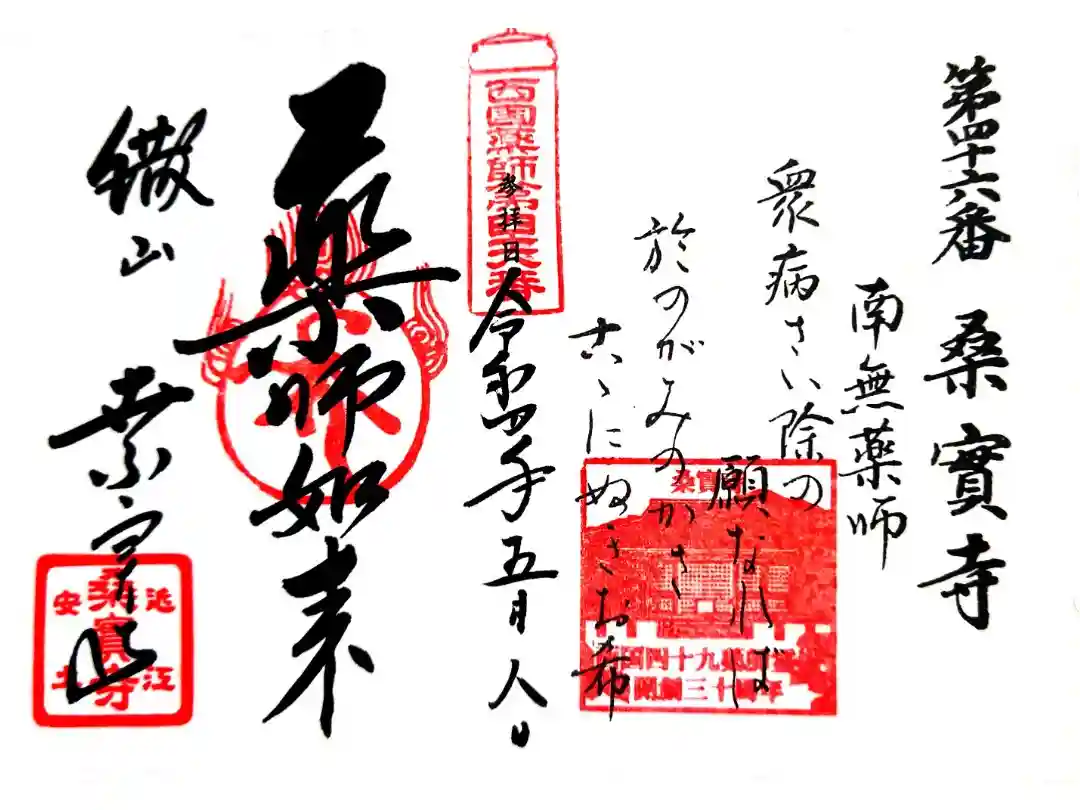 第四十六番 桑實寺
南無薬師
衆病さい除の
願なれば
於のがみのかさ
古ゝにぬきお希
参拝日 令和四年五月八日
薬師如来
繖山 桑實寺
桑實
西国四十九薬師霊場
開創三十周年
近江
安土
桑實寺